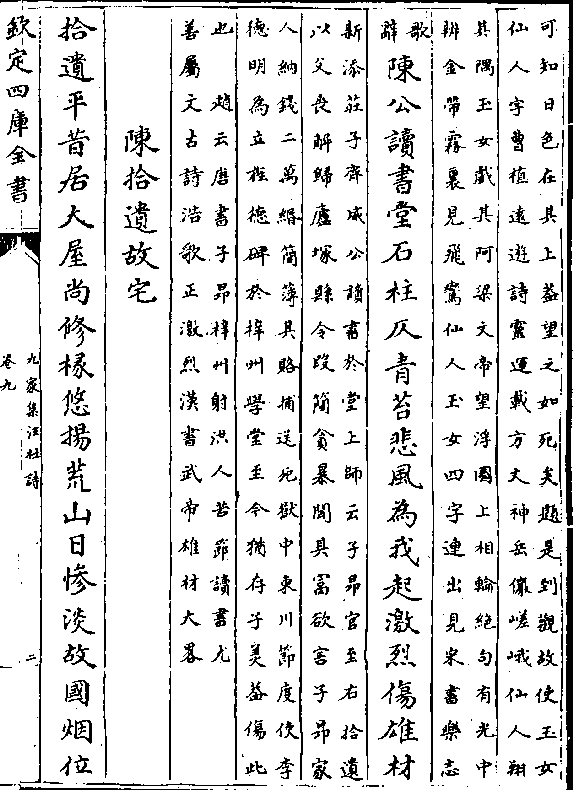 可知日色在其上葢望之如死矣題是到觀故使玉女
仙人字曹植遠遊詩靈運載方丈神岳儼嵯峨仙人翔
其隅玉女戲其阿梁文帝望浮圖上相輪絶句有光中
辨金帶霧裏見飛鸞仙人玉女四字連出見宋書樂志
歌
辭
陳公讀書堂石柱仄青苔悲風為我起激烈傷雄材
新添莊子齊威公讀書於堂上師云子昂官至右拾遺
以父喪解歸廬塚縣令段簡貪暴聞其富欲害子昂家
人納錢二萬緡簡薄其賂捕送死獄中東川節度使李
德明為立旌德碑於梓州學堂至今猶存子美葢傷此
也 趙云唐書子昂梓州射洪人苦節讀書尤
善屬文古詩浩歌正激烈漢書武帝雄材大畧
陳拾遺故宅
拾遺平昔居大屋尚修椽悠揚荒山日慘淡故國烟位
欽定四庫全書
九家集注杜詩
卷九
二